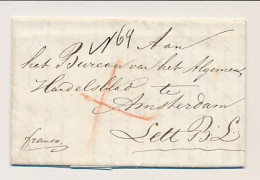 N 69 Aan
het Bureau van het Algemeen
Handelsblad te
Amsterdam
franco Lett B: L